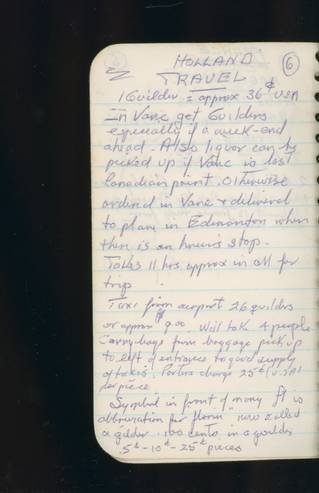 HOLLAND
6
TRAVEL
1 Guilder = approx 36¢ USA
In Vanc get Guilders
especially if a week-end
ahead. Also liquor can be
picked up if Vanc is last
Canadian point. Otherwise
ordered in Vanc & delivered
to plane in Edmonton when
there is an hour's stop.
Takes 11 hrs approx in all for
trip
Taxi from airport 26 guilders
or approx $9.00. Will take 4 people
Carry bags from baggage pick up
to left of entrance to good supply
of taxis. Porters charge 25¢ (USA)
per piece
Symbol in front of money ft is
abbreviation for florin now called
a guilder. 100 cents in a guilder
5¢ - 10¢ - 25¢ pieces